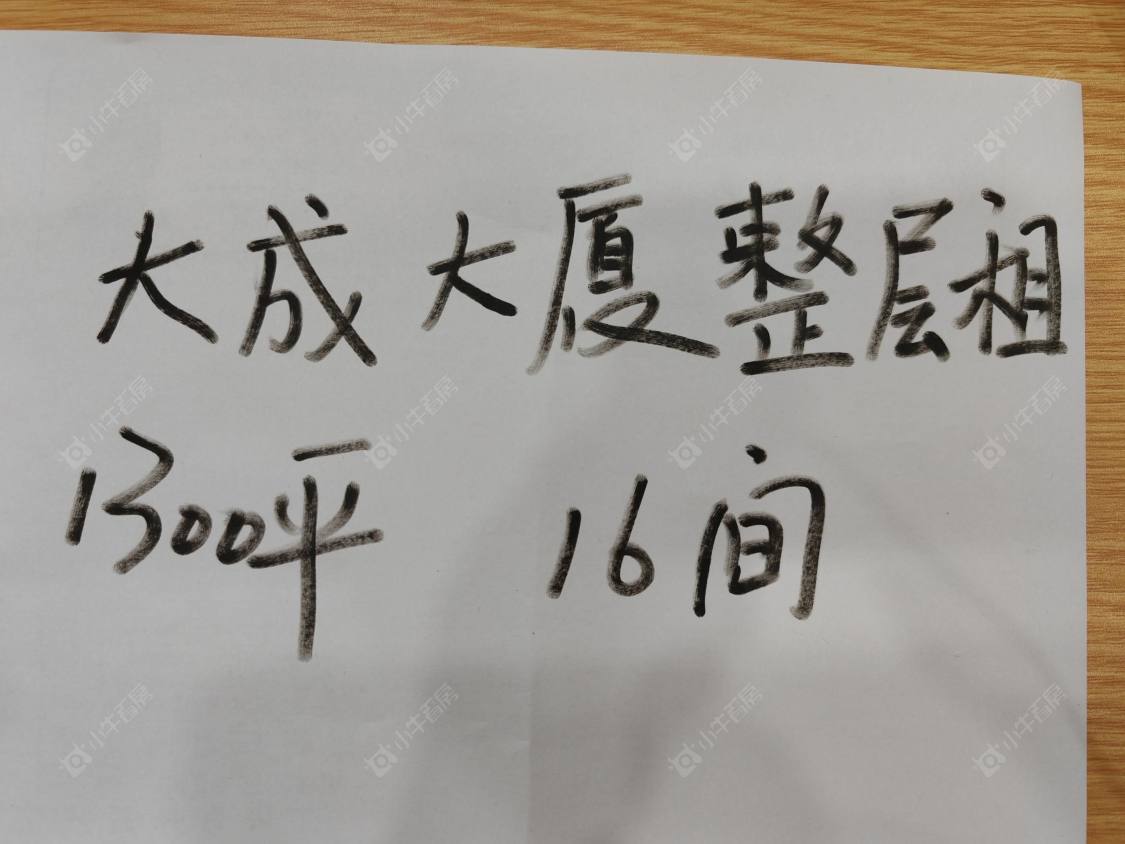 大成大厦整层租
1300平 16间
小牛看房
小牛看房
小牛看房
小牛看房
小牛看房
小牛看房
小牛看房
小牛看房
小牛看房
小牛看房
小牛看房
小牛看房